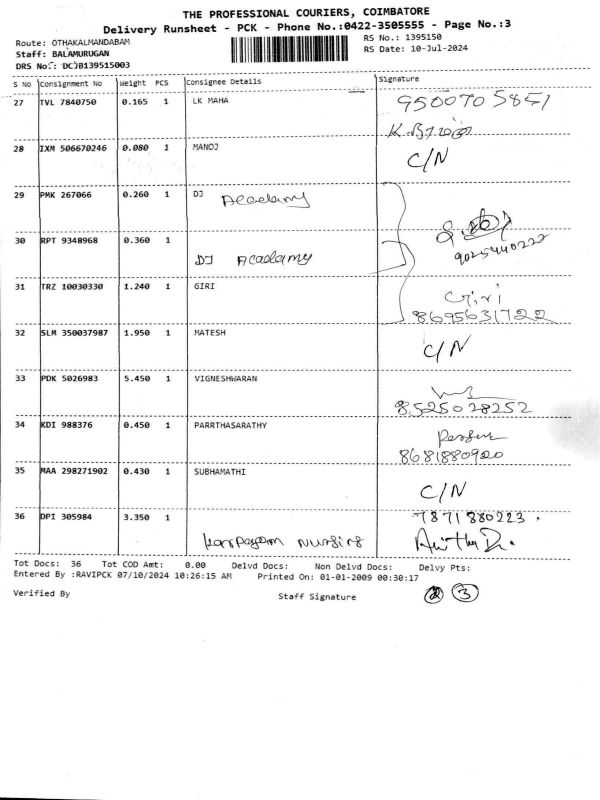 THE PROFESSIONAL COURIERS, COIMBATORE
Delivery Runsheet - PCK - Phone No.:0422-3505555 - Page No.:3
Route: OTHAKALMANDABAM
RS No.: 1395150
Staff: BALAMURUGAN
RS Date: 10-Jul-2024
DRS No.: DCJB139515003
S No Consignment No Weight PCS Consignee Details Signature
27 TVL 7840750 0.165 1 LK MAHA 9500705851
28 IXM 506670246 0.080 1 MANOJ C/N
29 PMK 267066 0.260 1 DJ Academy
30 RPT 9348968 0.360 1 9025440222
DJ Academy
31 TRZ 10030330 1.240 1 GIRI Giri
8695631722
32 SLM 350037987 1.950 1 MATESH C/N
33 PDK 5026983 5.450 1 VIGNESHWARAN
8525028252
34 KDI 988376 0.450 1 PARRTHASARATHY
8681880920
35 MAA 298271902 0.430 1 SUBHAMATHI C/N
36 DPI 305984 3.350 1 7871880223.
Karpagam Nursing
Tot Docs: 36 Tot COD Amt: 0.00 Delvd Docs: Non Delvd Docs: Delvy Pts:
Entered By :RAVIPCK 07/10/2024 10:26:15 AM Printed On: 01-01-2009 00:30:17
Verified By Staff Signature
3